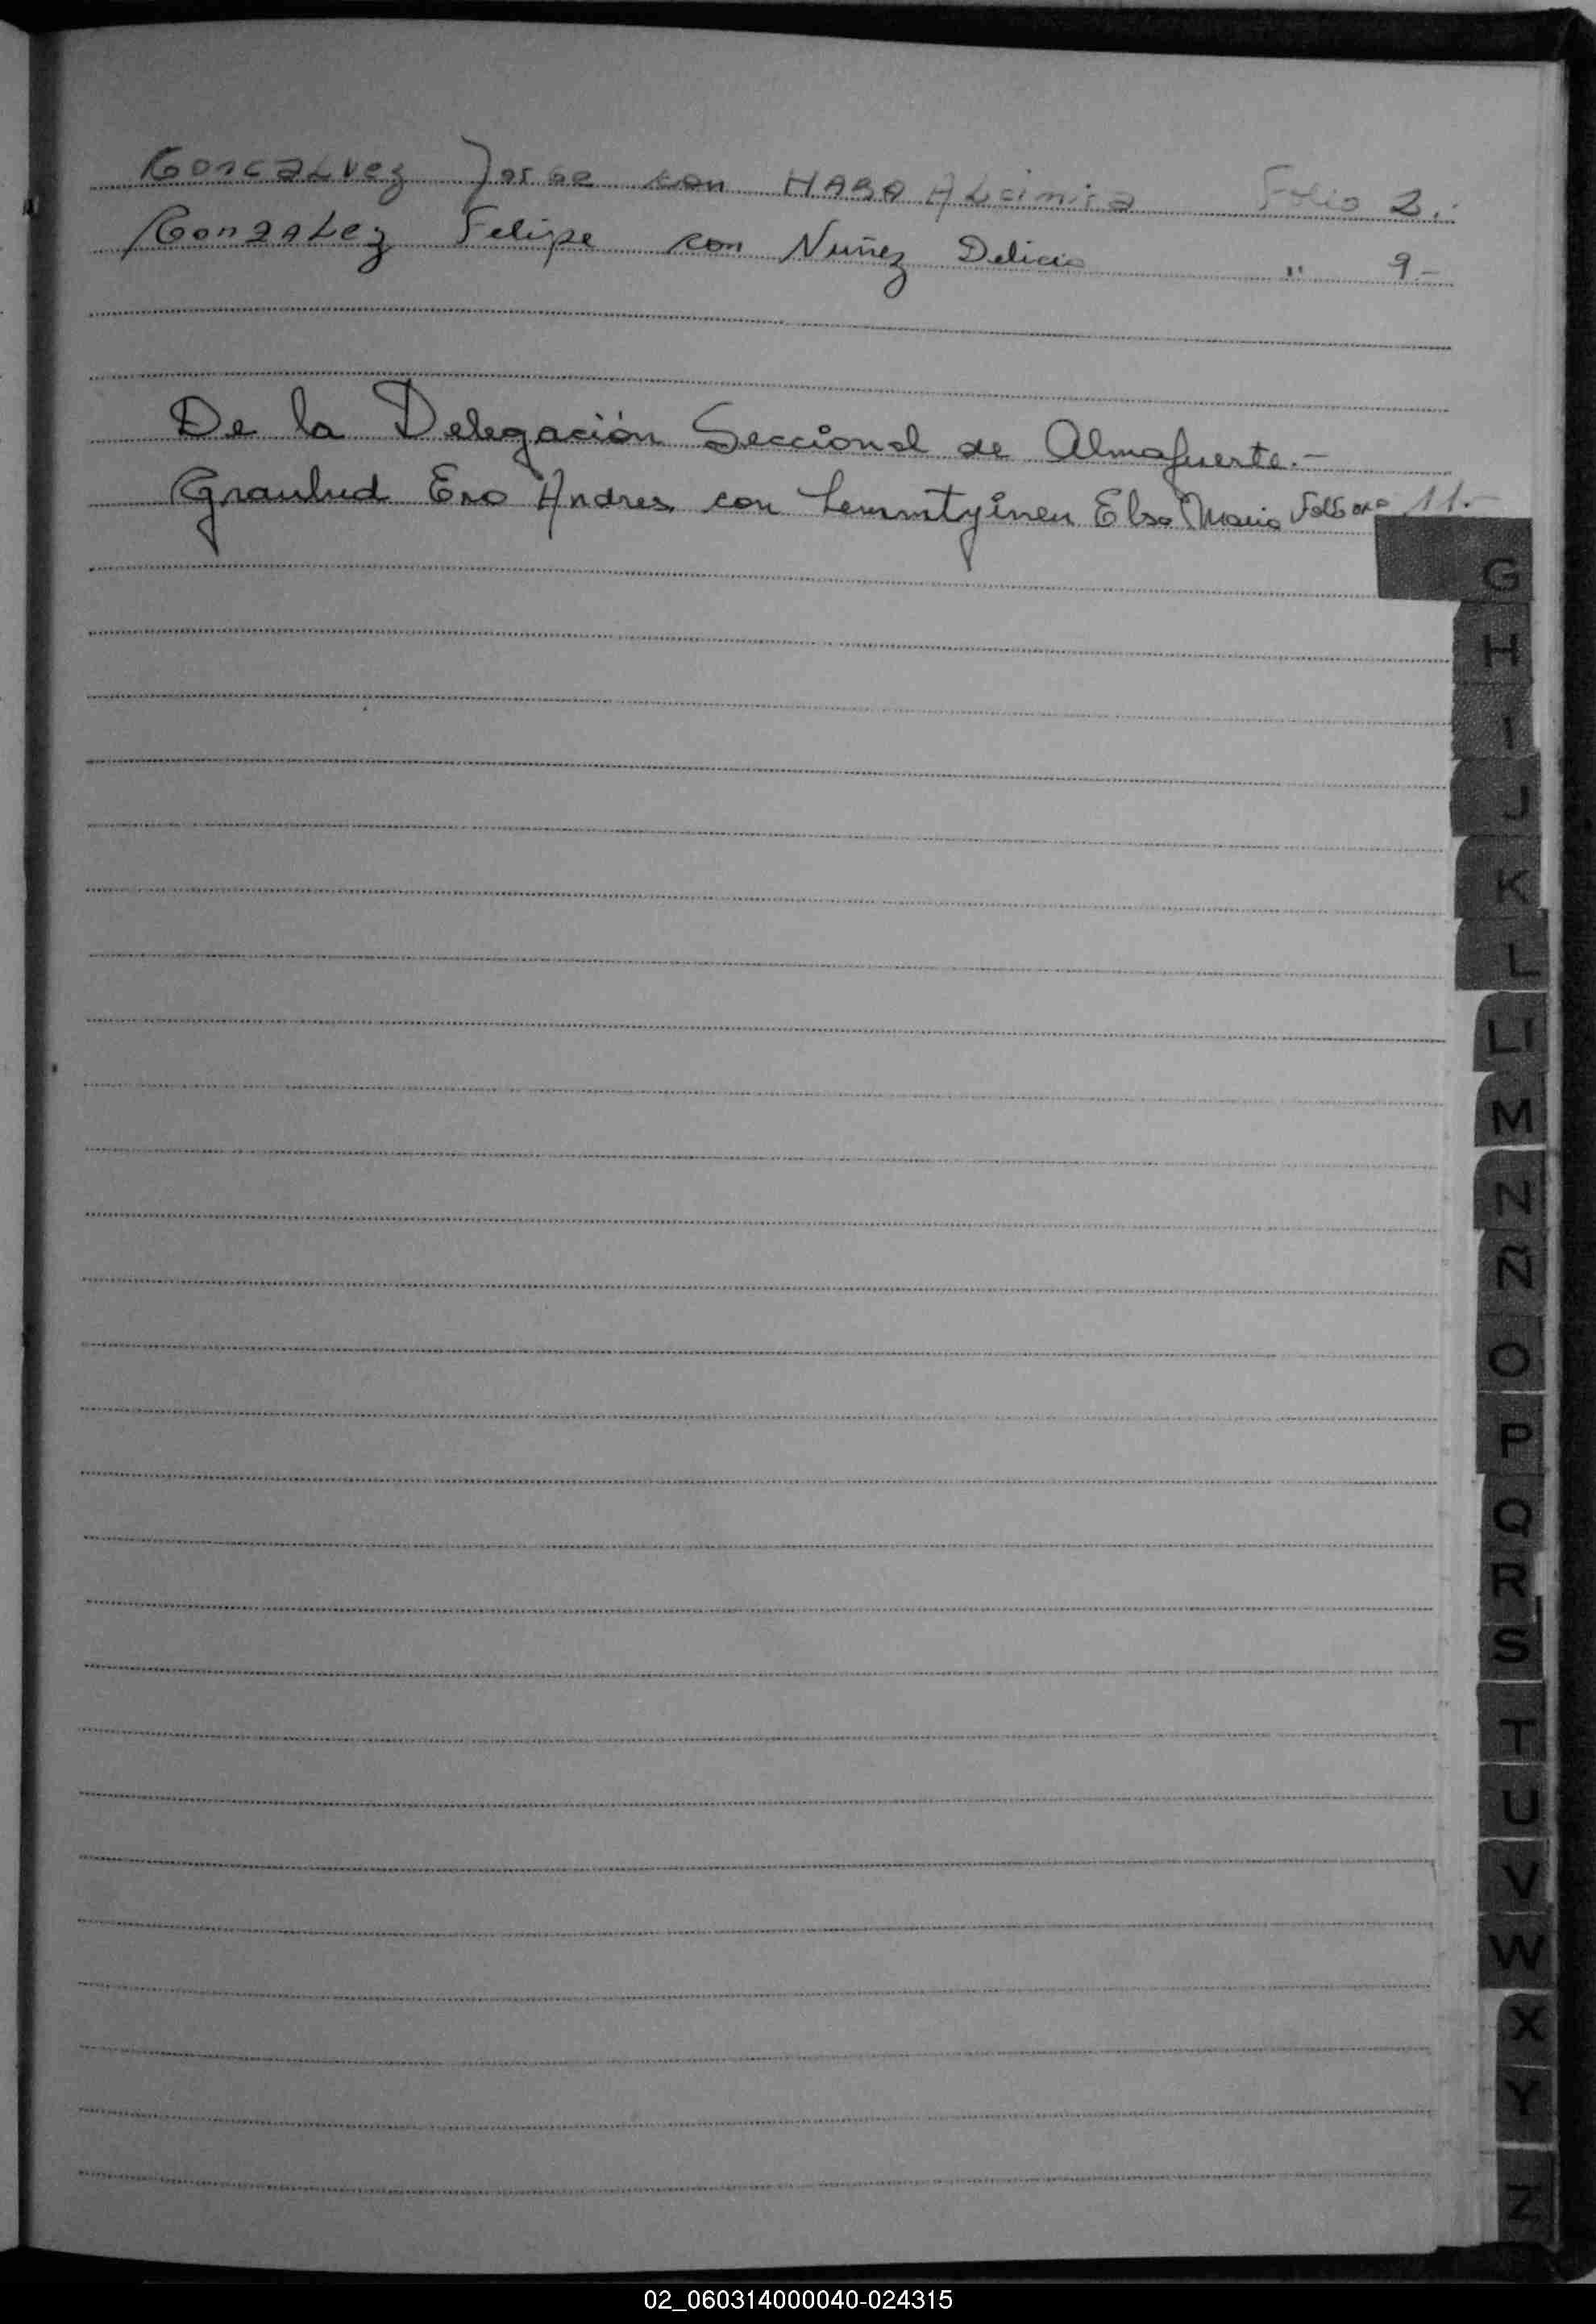 Goncalvez Jorge con HABA Alcimira Folio 2.-
Gonzalez Felipe con Nuñez Delicia " 9.-
De la Delegación Seccional de Almafuerte.-
Granlud Ero Andres con Lemmtyinen Elsa Maria 11.-
G
H
I
J
K
L
Ll
M
N
Ñ
O
P
Q
R
S
T
U
V
W
X
Y
Z
02_060314000040-024315